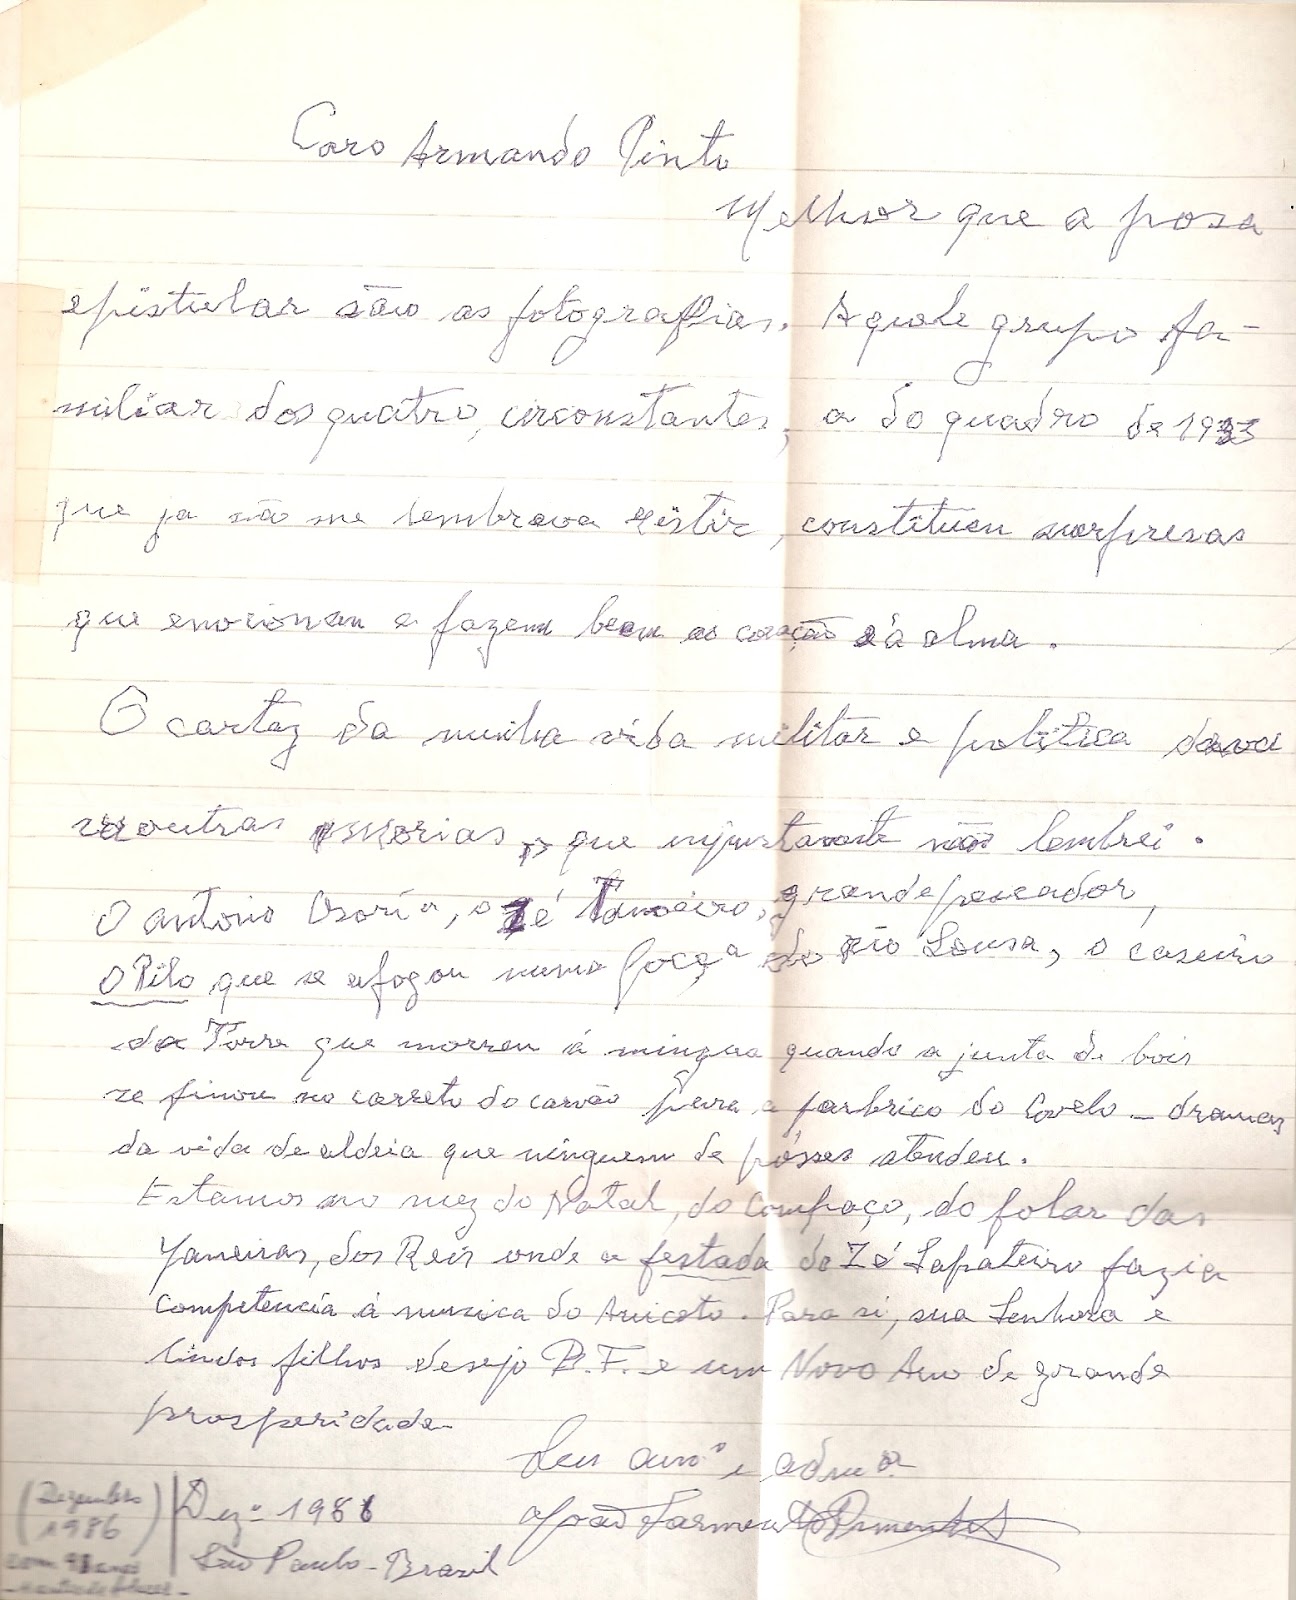 Caro Armando Pinto
Melhor que a posa
epistular são as fotografias. Aquele grupo fa-
miliar dos quatro, circonstantes, a do quadro de 1933
que ja não me lembrava existir, constituem surpresas
que emocionam e fazem bem ao coração e á alma.
O cartaz da minha vida militar e politica dava
outras que injustamente não lembrei.
O antonio Osorio, o Zé Tanoeiro, grande pescador,
O Pilo que se afogou numa do rio Sousa, o caseiro
da Torre que morreu á mingua quando a junta de bois
se finou no carreto do carvão para a farbrica do Covelo - dramas
da vida de aldeia que ninguem de pósses atendeu.
Estamos no mez do Natal, do Compaço, do folar das
Yaneiras, dos Reis onde a festada do Zé Sapateiro fazia
competencia á muzica do Aniceto. Para si, sua Senhora e
lindos filhos desejo B.F. e um Novo Ano de grande
prosperidade
Seu amº e admor
João Sarmento Pimentel
Dezº 1986
São Paulo - Brazil
(Dezembro
1986)
com anos